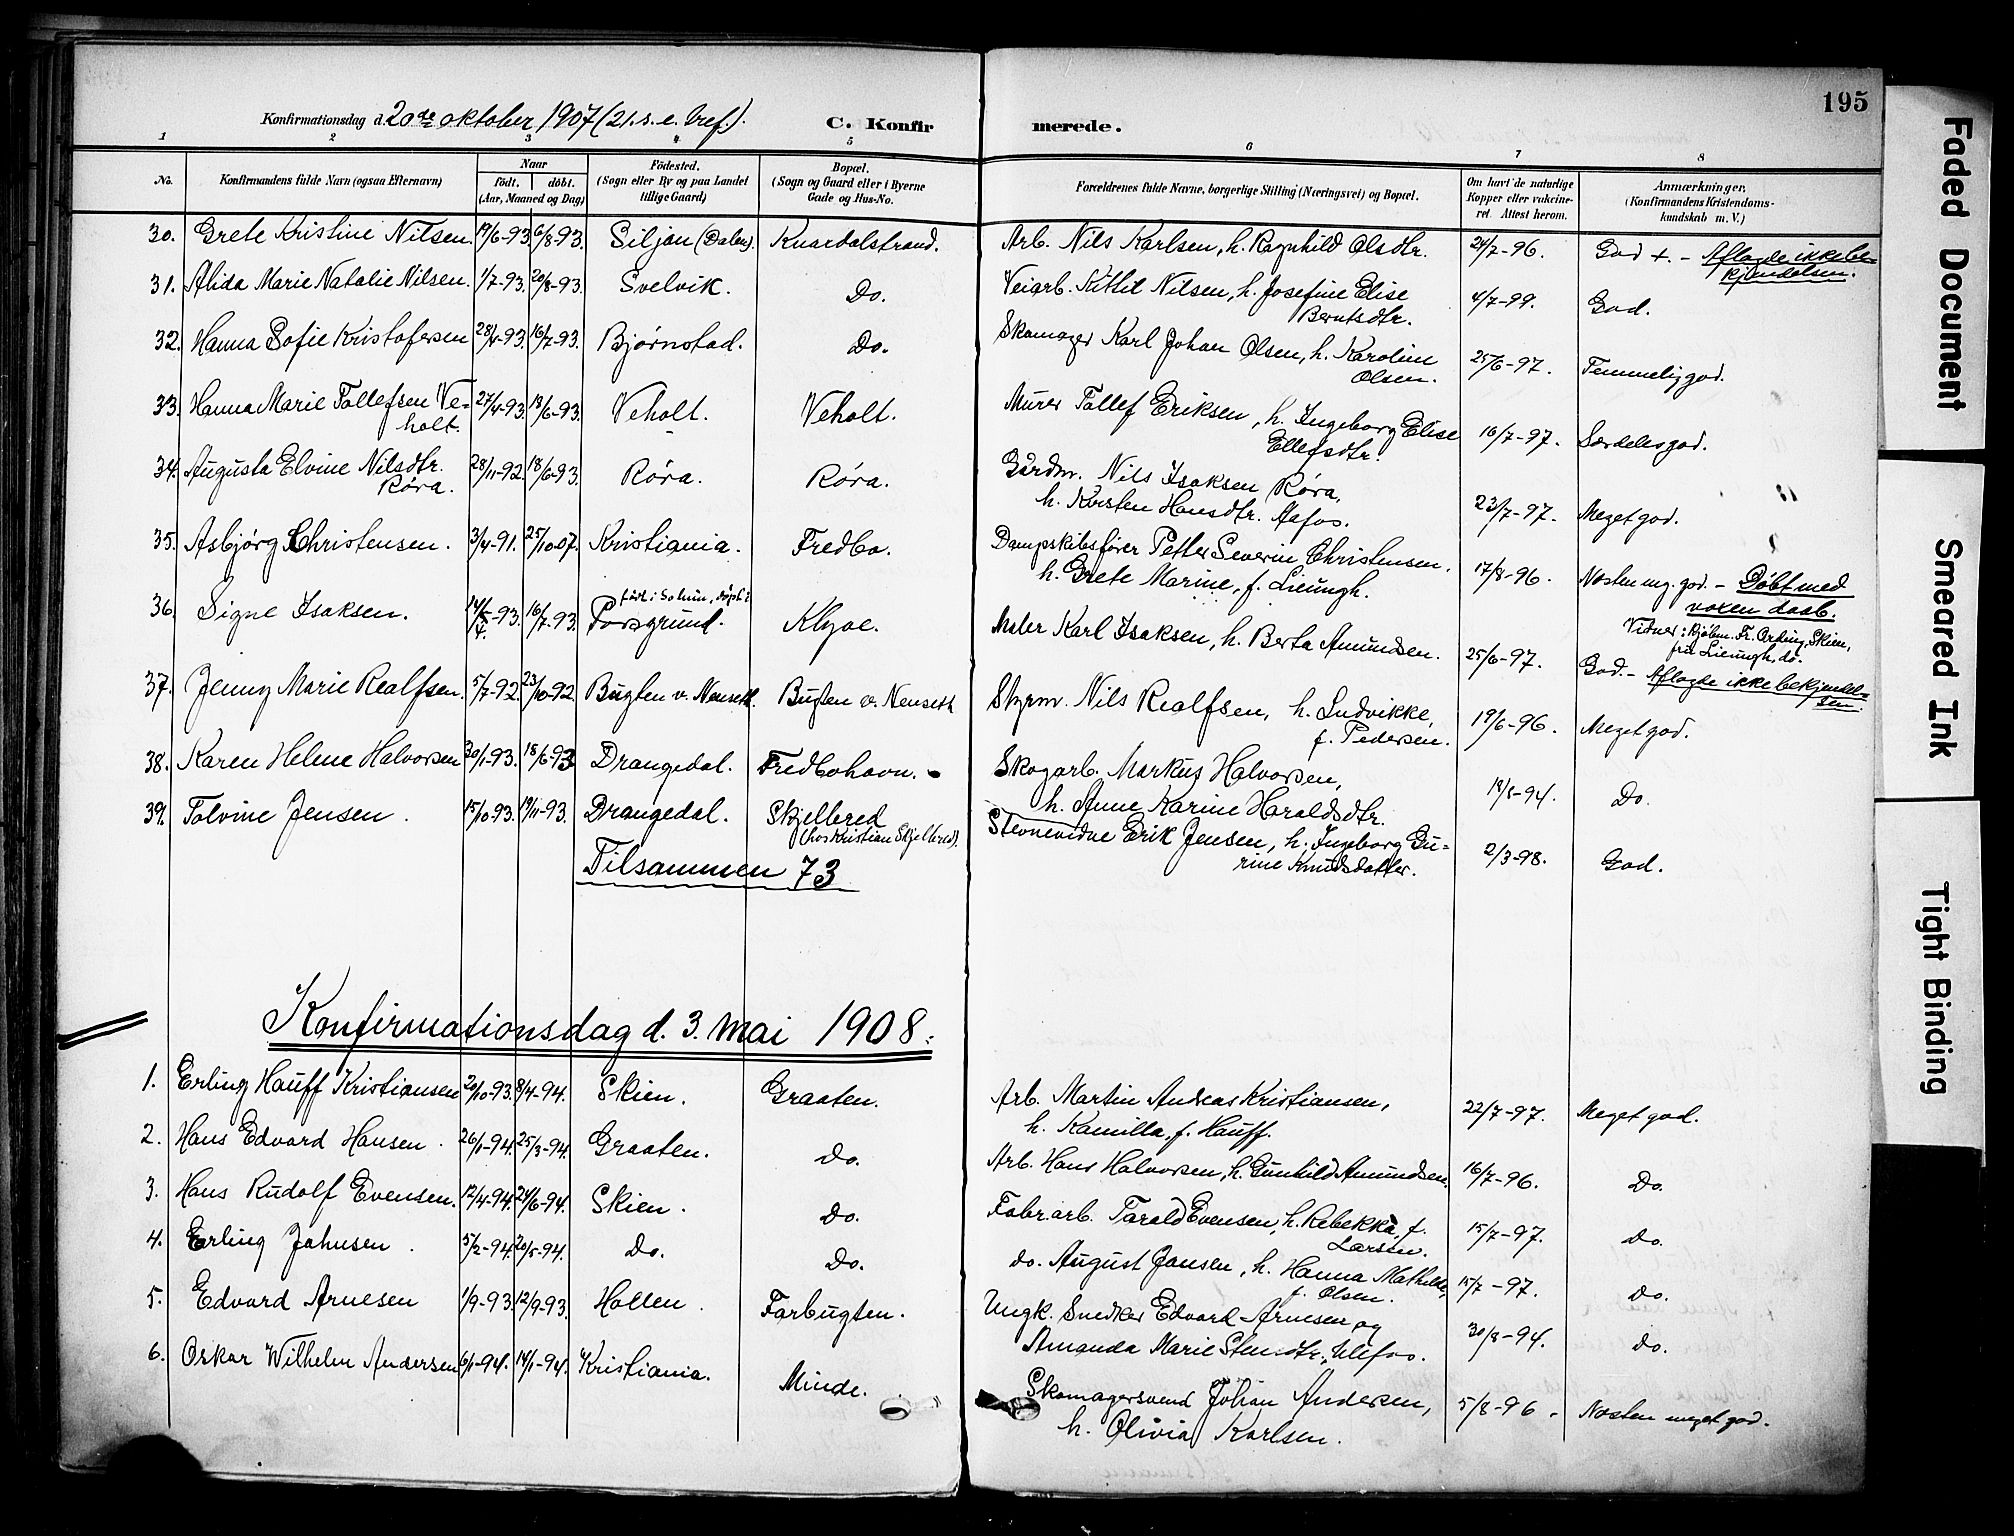 195
Konfirmationsdag d. 20de oktober 1907 (21. s. e. tref.). C. Konfirmerede.
1 2 3 4 5 6 7 8
No. Konfirmandens fulde Navn (ogsaa Efternavn) Naar født. døbt. (Aar, Maaned og Dag) Fødested. (Sogn eller By og paa Landet tillige Gaard) Bopæl. (Sogn og Gaard eller i Byerne Gade og Hus-No. Forældrenes fulde Navne, borgerlige Stilling (Næringsvei) og Bopæl. Om havt de naturlige Kopper eller vakcineret. Attest herom. Anmærkninger. (Konfirmandens Kristendomskundskab m. V.)
30. Grete Kristine Nilsen. 19/6-93. 6/8-93. Siljan (Dalen). Knardalstrand. Arb. Nils Karlsen, h. Ragnhild Olsdtr. 24/7-96. God +. - Aflagde ikke bekjendelsen.
31. Alida Marie Natalie Nilsen. 1/7-93. 20/8-93. Svelvik. Do. Veiarb. Kittil Nilsen, h. Josefine Elise
Berntsdtr. 4/7-99. God.
32. Hanna Sofie Kristofersen 28/4-93. 16/7-93. Bjørnstad. Do. Skomager Karl Johan Olsen, h. Karoline
Olsen. 25/6-97. Temmelig god.
33. Hanna Marie Tollefsen Ve-
holt. 27/4-93. 18/6-93. Veholt. Veholt. Murer Tollef Eriksen, h. Ingeborg Elise
Ellefsdtr. 16/7-97. Særdeles god.
34. Augusta Elvine Nilsdtr.
Røra. 28/11-92. 18/6-93. Røra. Røra. Gårdm. Nils Isaksen Røra,
h. Karsten Hansdtr. Aafos. 23/7-97. Meget god.
35. Asbjørg Christensen. 3/4-91. 25/10-07. Kristiania. Fredbo. Dampskibsfører Petter Severin Christensen.
h. Grete Marine, f. Lieungh. 17/8-96. Næsten mg. god. - Døbt med
voxen daab.
Vidner: Kjøbm. Fr. Arding, Skien,
fru Lieungh, do.
36. Signe Isaksen. 14/4-93. 16/7-93. født i Solum, døpt i
Porsgrund. Klyve. Maler Karl Isaksen, h. Berta Amundsen. 25/6-97. God. - Aflagde ikke bekjendel-
sen.
37. Jenny Marie Realfsen. 5/7-92. 23/10-92. Bugten v. Nenseth. Bugten v. Nenseth Styrm. Nils Realfsen, h. Ludvikke,
f. Pedersen. 19/6-96. Meget god.
38. Karen Helene Halvorsen 30/1-93. 18/6-93 Drangedal. Fredbohavn. Skogarb. Markus Halvorsen,
h. Anne Karine Haraldsdtr. 18/5-94. Do.
39. Tolvine Jensen. 15/10-93. 19/11-93. Drangedal. Skjelbred
(hos Kristian Skjelbred). Stevnevidne Erik Jensen, h. Ingeborg Gu-
rine Knudsdatter. 2/3-98. God.
Tilsammen 73
Konfirmationsdag d. 3. mai 1908.
1. Erling Hauff Kristiansen 20/10-93. 8/4-94. Skien. Graaten. Arb. Martin Andreas Kristiansen,
h. Kamilla, f. Hauff. 22/7-97. Meget god.
2. Hans Edvard Hansen. 26/1-94. 25/3-94. Graaten. Do. Arb. Hans Halvorsen, h. Gunhild Amundsen. 16/7-96. Do.
3. Hans Rudolf Evensen. 12/4-94. 24/6-94. Skien. Do. Fabr.arb. Tarald Evensen, h. Rebekka, f.
Larsen. 15/7-97. Do.
4. Erling Johnsen. 5/2-94. 20/5-94. Do. Do. do. August Jansen, h. Hanna Mathilde,
f. Olsen. 15/7-97. Do.
5. Edvard Arnesen 1/9-93. 12/9-93. Hollen. Farbugten. Ungk. Snedker Edvard Arnesen og
Amanda Marie Stensdtr., Ulefos. 30/8-94. Do.
6. Oskar Wilhelm Andersen 6/1-94. 14/1-94. Kristiania. Minde. Skomagersvend Johan Andersen,
h. Olivia Karlsen. 5/8-96. Næsten meget god.
Faded Document
Smeared Ink
Tight Binding